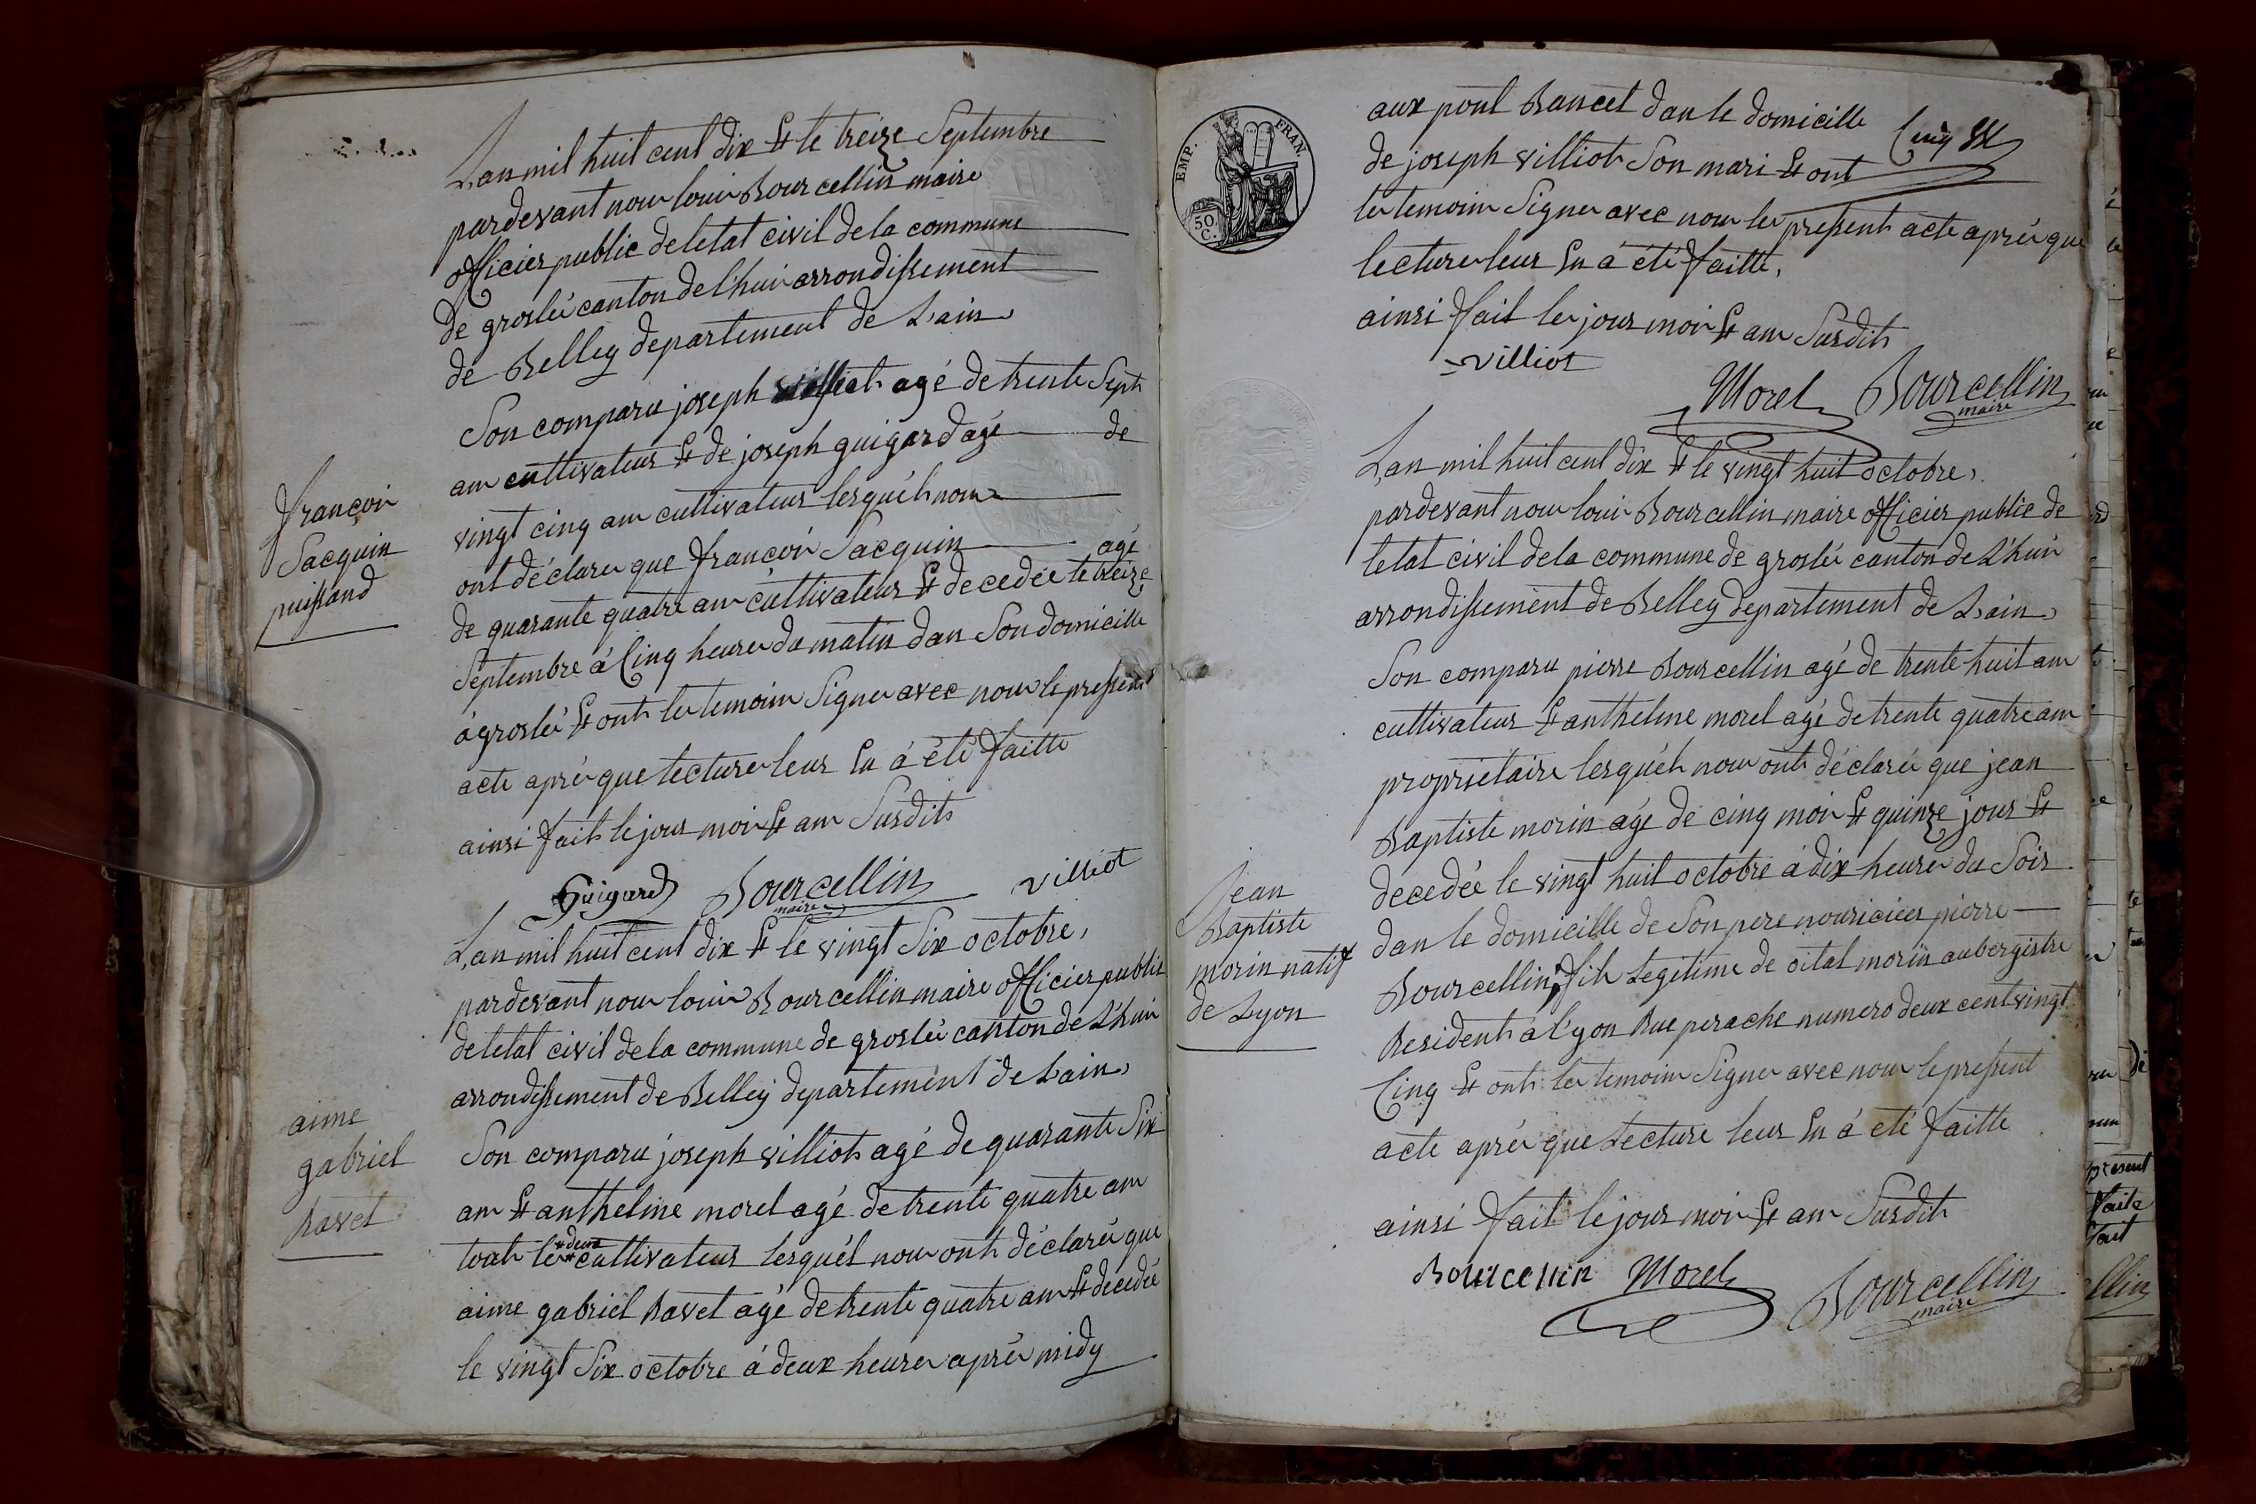 L'an mil huit cent dix Et le treize Septembre
pardevant nous louis Bourcellin maire
officier public de letat civil de la commune
de groslée canton de l'huis arrondissement
de Belley departement de L'ain
Son comparu joseph villiot agé de trente Sept
ans cultivateur Et de joseph guigard agé de
vingt cinq ans cultivateur lesquels nous
ont déclarer que françois Sacquin agé
de quarante quatre ans cultivateur Et decedée le treize
Septembre à Cinq heures du matin dans Son domicille
à groslée Et ont les temoins Signer avec nous le pressent
acte après que lecture leur En à été faitte
ainsi fait le jour mois Et ans Susdit
françois
Sacquin
puissand
Guigard Bourcellin villiot
maire
L'an mil huit cent dix Et le vingt Six octobre,
pardevant nous louis Bourcellin maire officier public
de letat civil de la commune de groslée canton de L'huis
arrondissement de Belley departement de L'ain,
Son comparu joseph villiot agé de quarante Six
ans Et anthelme morel agé de trente quatre ans
tout les deux cultivateur lesquels nous ont déclaré que
aime gabriel Ravet agé de trente quatre ans Et decedée
le vingt Six octobre à deux heures après midy
aime
gabriel
Ravet
EMP. FRAN.
50
C.
Cinq
aux pont Bancet dans le domicille
de joseph villiot Son mari Et ont
les temoins Signer avec nous les pressent acte après que
lecture leur En à été faitte,
ainsi fait les jour mois Et ans Susdit
villiot
Morel Bourcellin
maire
L'an mil huit cent dix Et le vingt huit octobre,
pardevant nous louis Bourcellin maire officier public de
letat civil de la commune de groslée canton de L'huis
arrondissement de Belley departement de L'ain,
Son comparu pierre Bourcellin agé de trente huit ans
cultivateur Et anthelme morel agé de trente quatre ans
proprietaire lesquels nous ont déclarés que jean
Baptiste morin agé de cinq mois Et quinze jour Et
decedée le vingt huit octobre à dix heures du Soir
dans le domicille de Son pere nouricier pierre
Bourcellin, fils Legitime de vital morin aubergistre
Resident à Lyon Rue perache numero deux cent vingt
Cinq Et ont les temoins Signer avec nous le pressent
acte après que Lecture leur En à été faitte
ainsi fait le jour mois Et ans Susdit
jean
Baptiste
morin natif
de Lyon
Bourcellin Morel Bourcellin
maire
present
faite
fait